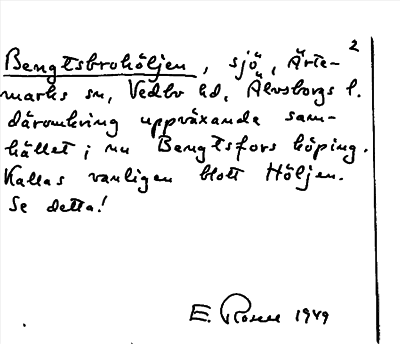 2
Bengtsbrohöljen, sjö, Ärte-
marks sn, Vedbo hd, Älvsborgs l.
däromkring uppväxande sam-
hället i nu Bengtsfors köping.
Kallas vanligen blott Höljen.
Se detta!
E. Rosell 1949